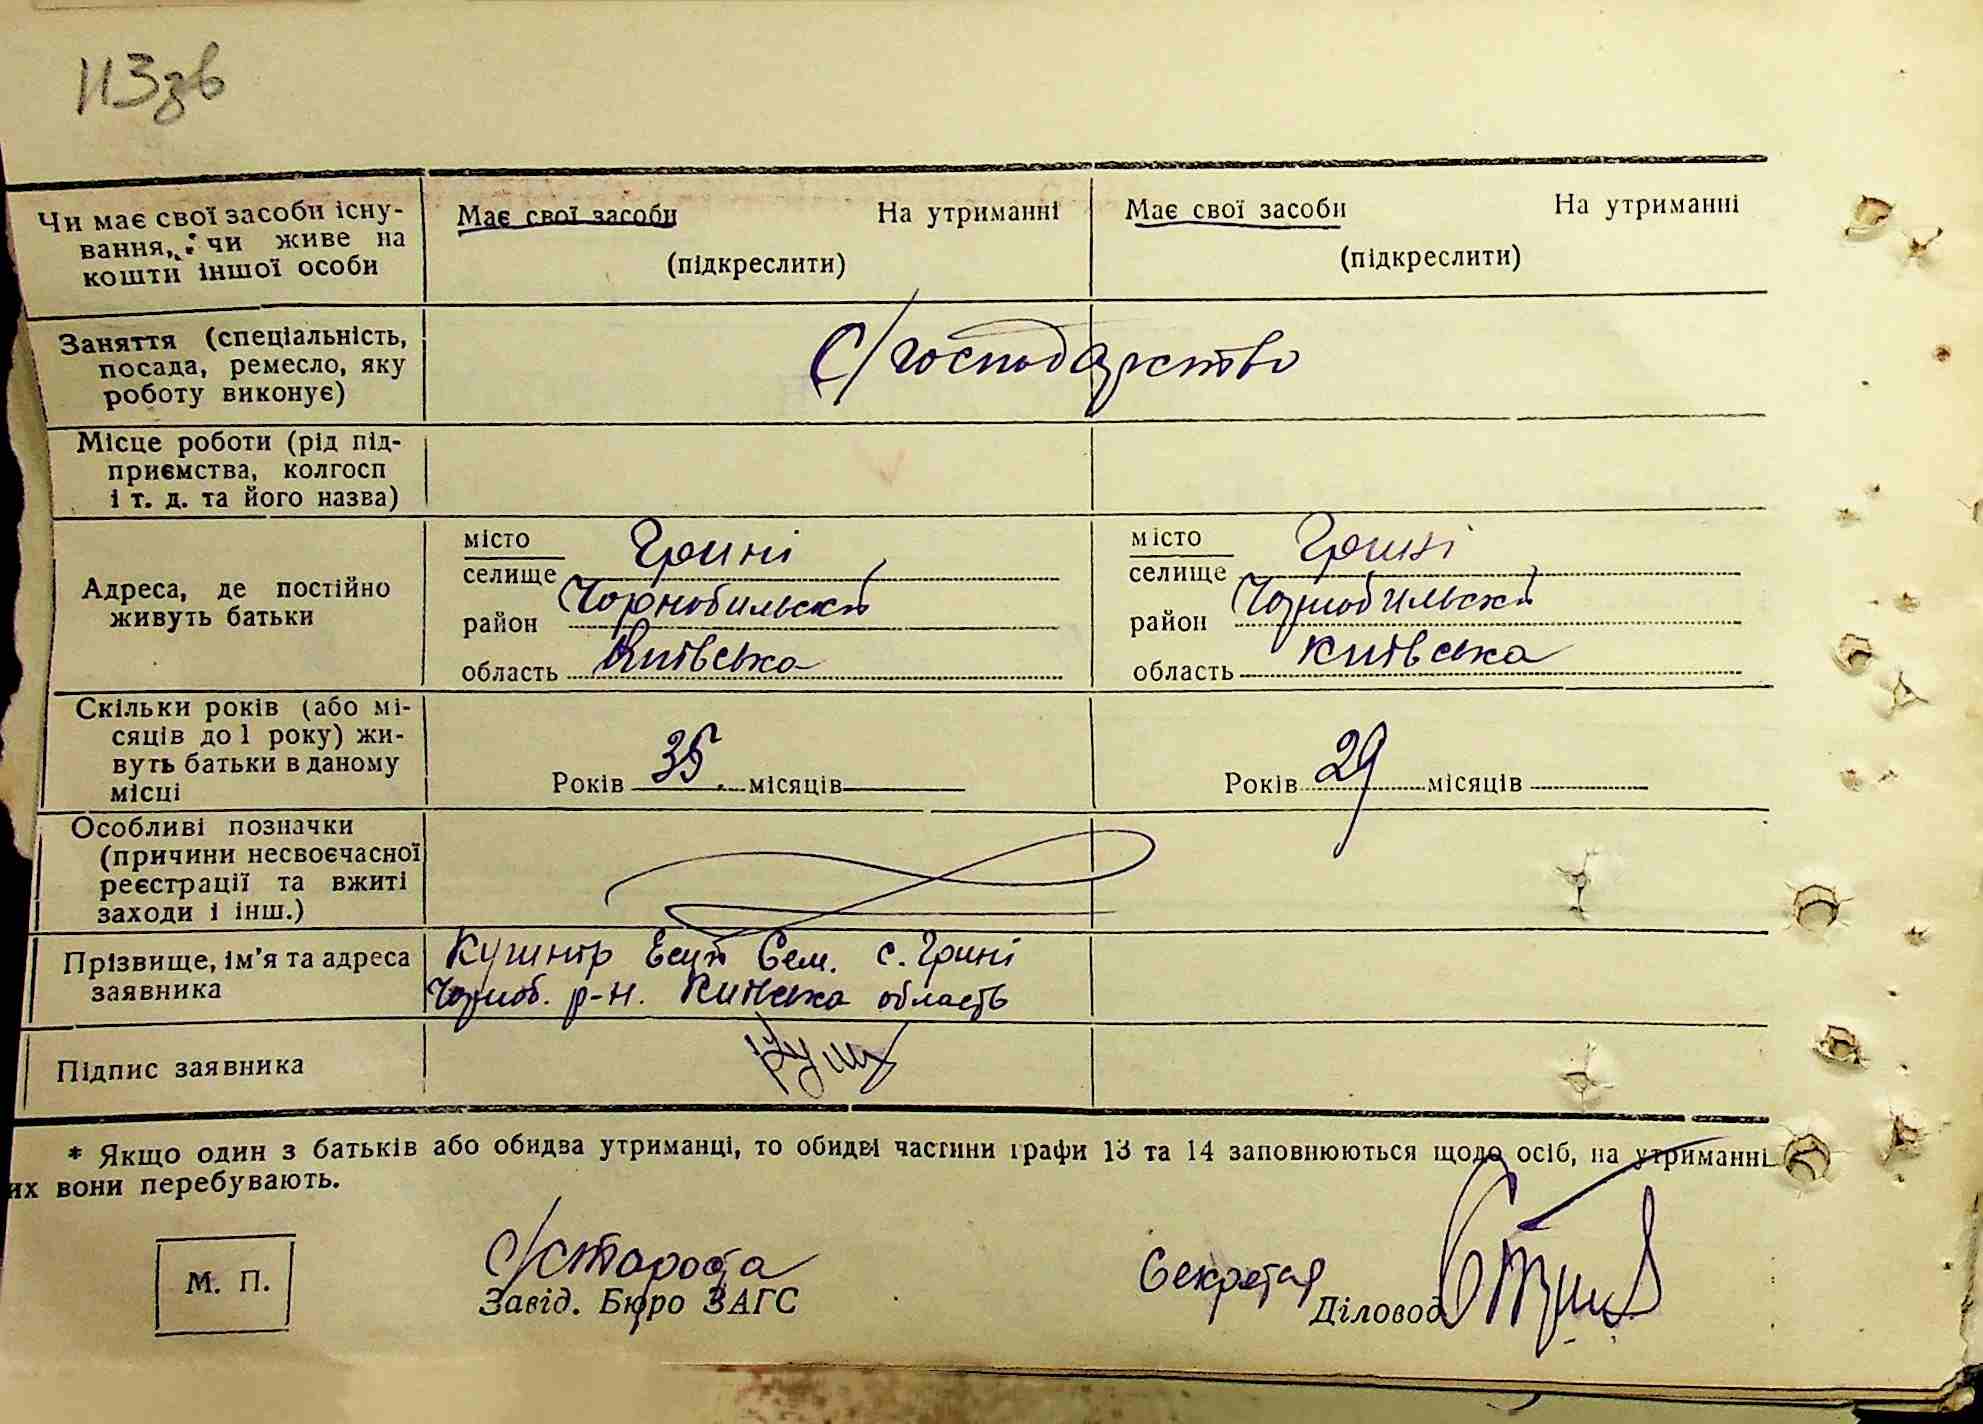 113зв
Чи має свої засоби існу-
вання, чи живе на
кошти іншої особи
Має свої засоби На утриманні
(підкреслити)
Має свої засоби На утриманні
(підкреслити)
Заняття (спеціальність,
посада, ремесло, яку
роботу виконує)
С/господарство
Місце роботи (рід під-
приємства, колгосп
і т. д. та його назва)
Адреса, де постійно
живуть батьки
місто
селище Грині
район Чорнобильськ
область Київська
місто
селище Грині
район Чорнобильськ
область Київська
Скільки років (або мі-
сяців до 1 року) жи-
вуть батьки в даному
місці
Років 35 місяців
Років 29 місяців
Особливі позначки
(причини несвоєчасної
реєстрації та вжиті
заходи і інш.)
Прізвище, ім'я та адреса
заявника
Кушнір Сем. с. Грині
Чорноб. р-н. Київська область
Підпис заявника
Куш
* Якщо один з батьків або обидва утриманці, то обидві частини графи 13 та 14 заповнюються щодо осіб, на утриманні
их вони перебувають.
М. П.
с/староста
Завід. Бюро ЗАГС
Секретар
Діловод